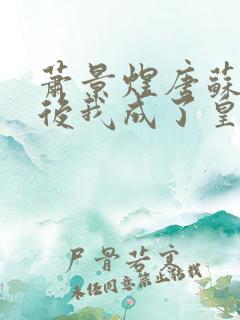 萧景煌唐蘇
後我成了皇
尸骨若寒
未经同意禁止转载